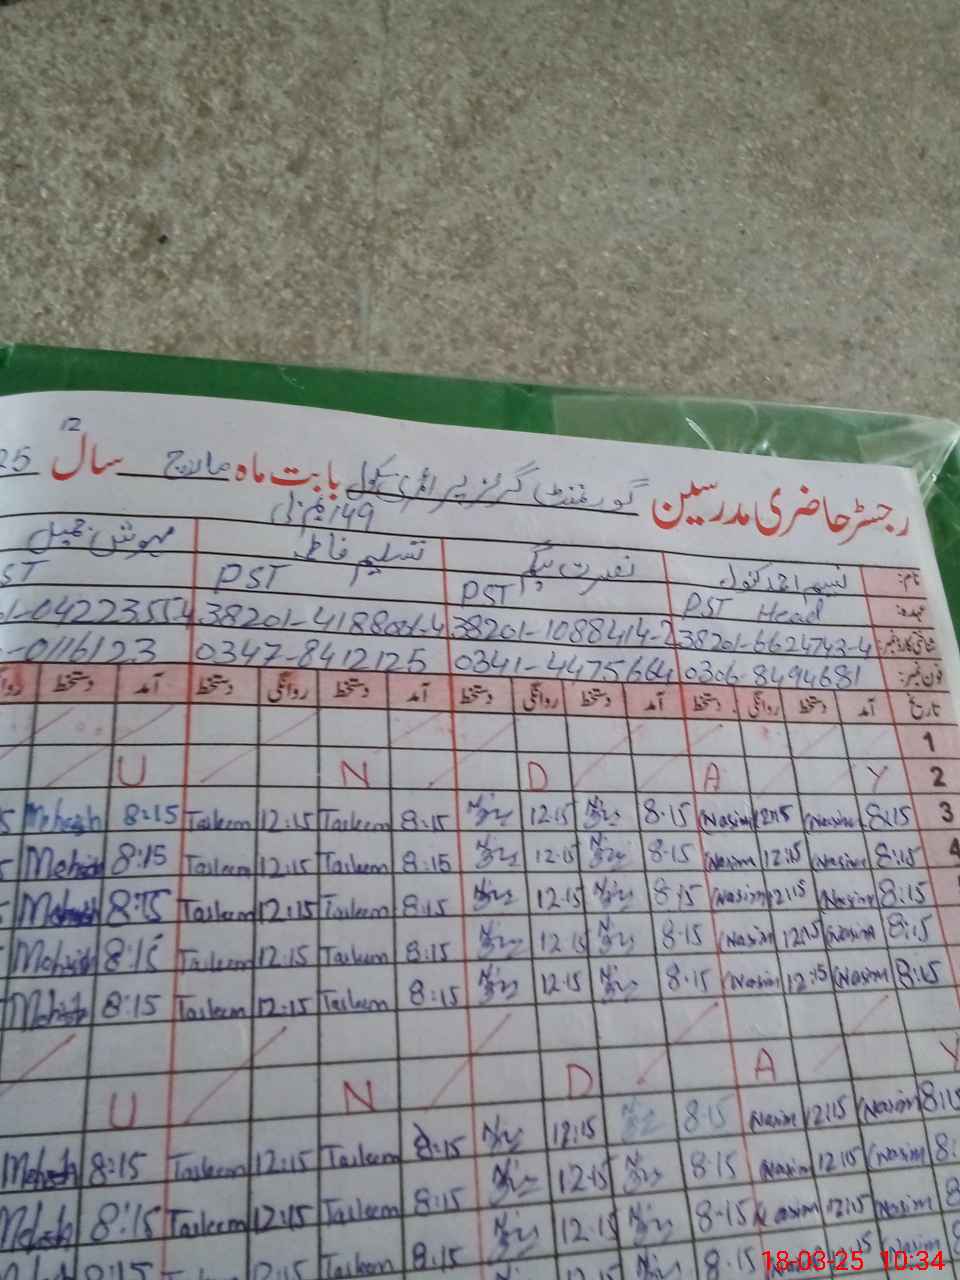 12
رجسٹر حاضری مدرسین گورنمنٹ گرلز پرائمری سکول بابت ماہ مارچ سال 25
149
نام: نسیم اختر نصرت تسلیم فاطمہ مہوش جمیل
عہدہ: PST Head PST PST ST
شناختی کارڈ نمبر: 38201-6624743-4 38201-1088414-2 38201-418808-4 01-04223554
فون نمبر: 0306-8494681 0341-4475664 0347-8412125 -0116123
تاریخ آمد دستخط روانگی دستخط آمد دستخط روانگی دستخط آمد دستخط روانگی دستخط آمد دستخط روا
1
2 Y A D N U
3 8:15 Nasim 12:15 Nasim 8.15 12.15 8:15 Tasleem 12:15 Tasleem 8:15 Mehwish 5
4 8:15 Nasim 12:15 Nasim 8.15 12.15 8:15 Tasleem 12:15 Tasleem 8:15 Mehwish 5
8:15 Nasim 12:15 Nasim 8.15 12.15 8:15 Tasleem 12:15 Tasleem 8:15 Mehwish 5
8:15 Nasim 12:15 Nasim 8.15 12.15 8:15 Tasleem 12:15 Tasleem 8:15 Mehwish
8:15 Nasim 12:15 Nasim 8.15 12.15 8:15 Tasleem 12:15 Tasleem 8:15 Mehwish
Y A D N U
8:15 Nasim 12:15 Nasim 8.15 12:15 8:15 Tasleem 12:15 Tasleem 8:15 Mehwish
8: Nasim 12:15 Nasim 8.15 12.15 8:15 Tasleem 12:15 Tasleem 8:15 Mehwish
8 Nasim 12:15 Nasim 8.15 12.15 8:15 Tasleem 12:15 Tasleem 8:15
18-03-25 10:34